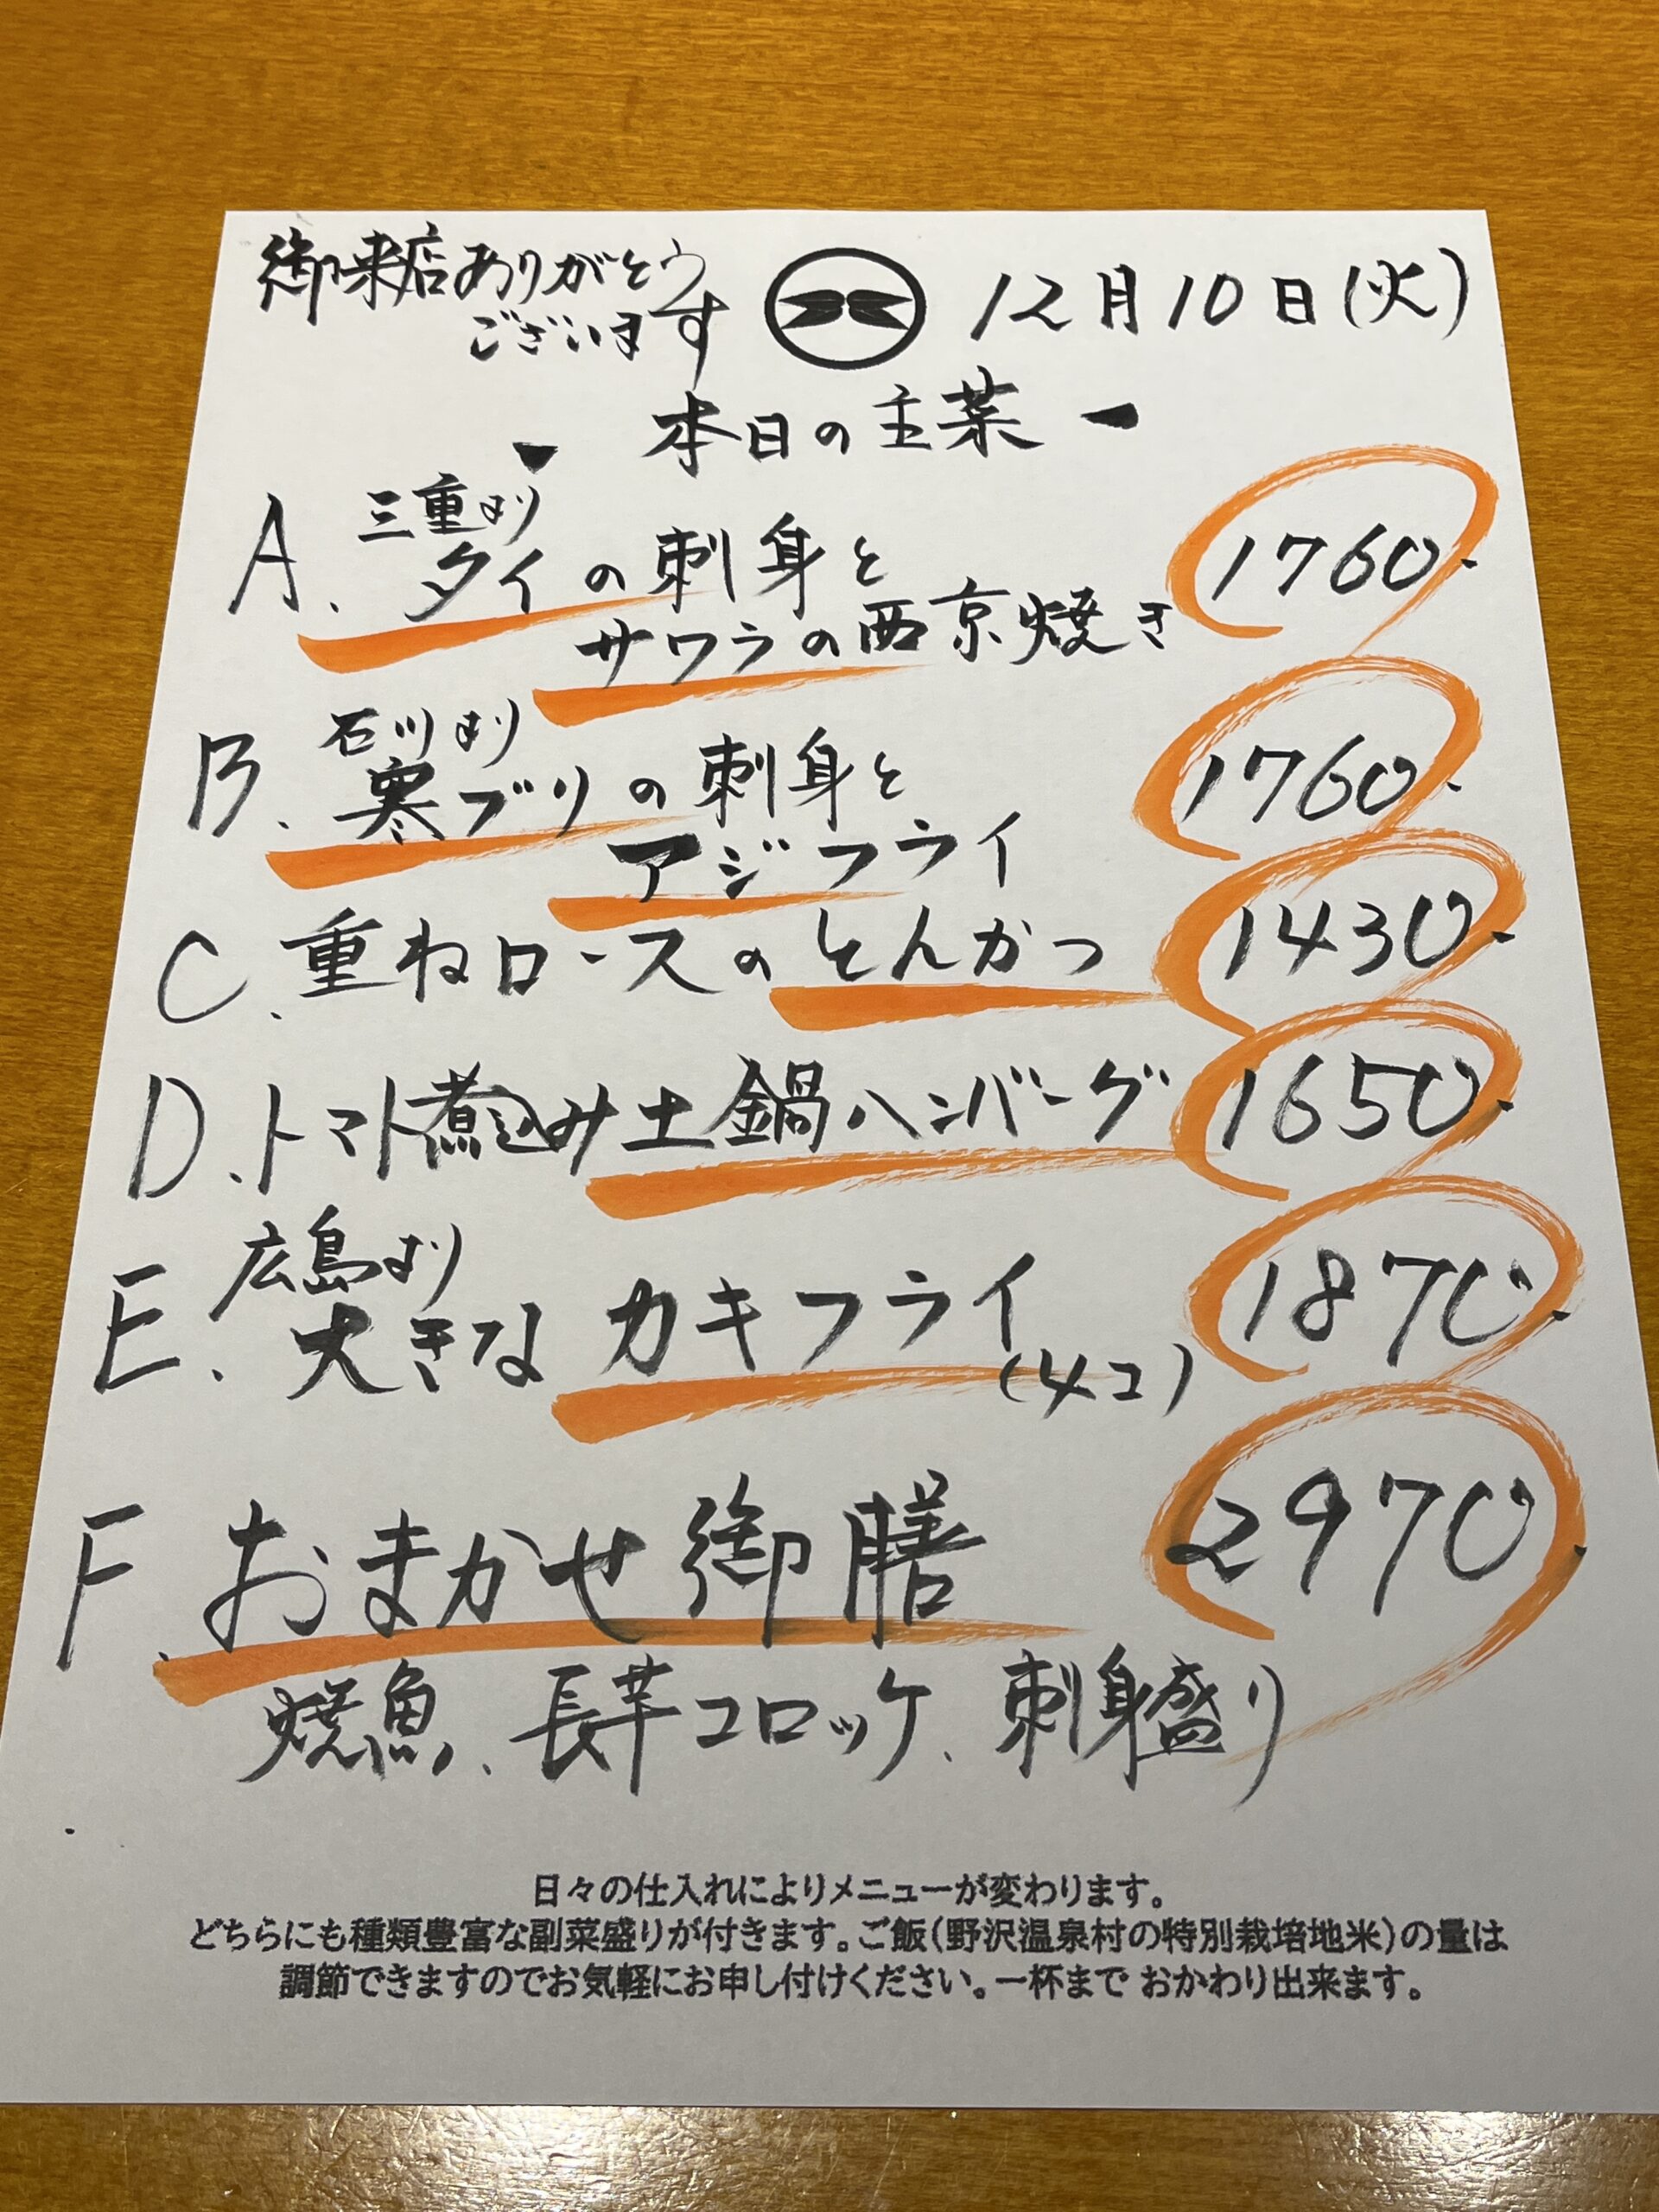 御来店ありがとう
ございます
12月10日(火)
本日の主菜
A. 三重より
タイの刺身と
サワラの西京焼き
1760.
B. 石川より
寒ブリの刺身と
アジフライ
1760.
C. 重ねロースのとんかつ 1430.
D. トマト煮込み土鍋ハンバーグ 1650.
E. 広島より
大きなカキフライ
(4コ)
1870.
F. おまかせ御膳 2970.
焼魚、長芋コロッケ、刺身盛り
日々の仕入れによりメニューが変わります。
どちらにも種類豊富な副菜盛りが付きます。ご飯(野沢温泉村の特別栽培地米)の量は
調節できますのでお気軽にお申し付けください。一杯まで おかわり出来ます。